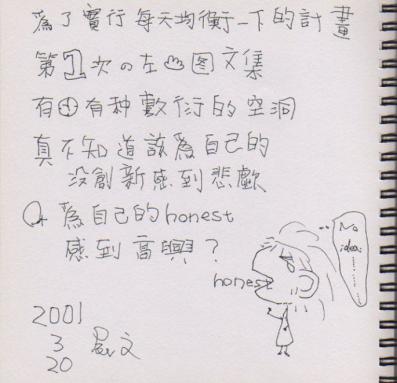 為了實行每天均衡一下的計畫
第1次の左手图文集
有种敷衍的空洞
真不知道該為自己的
沒創新感到悲歎
Or 為自己的honest
感到高興？
No idea......
honest
2001
3
20
文